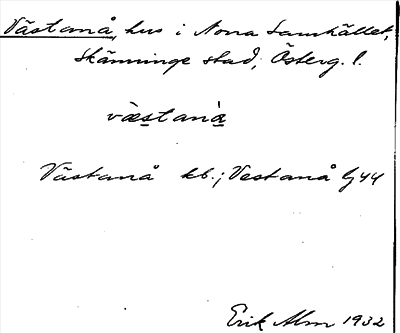 Västanå, hus i Norra Samhället,
Skänninge stad, Österg. l.
västanå
Västanå kb.; Vestanå Gj 44
Erik Alm 1932